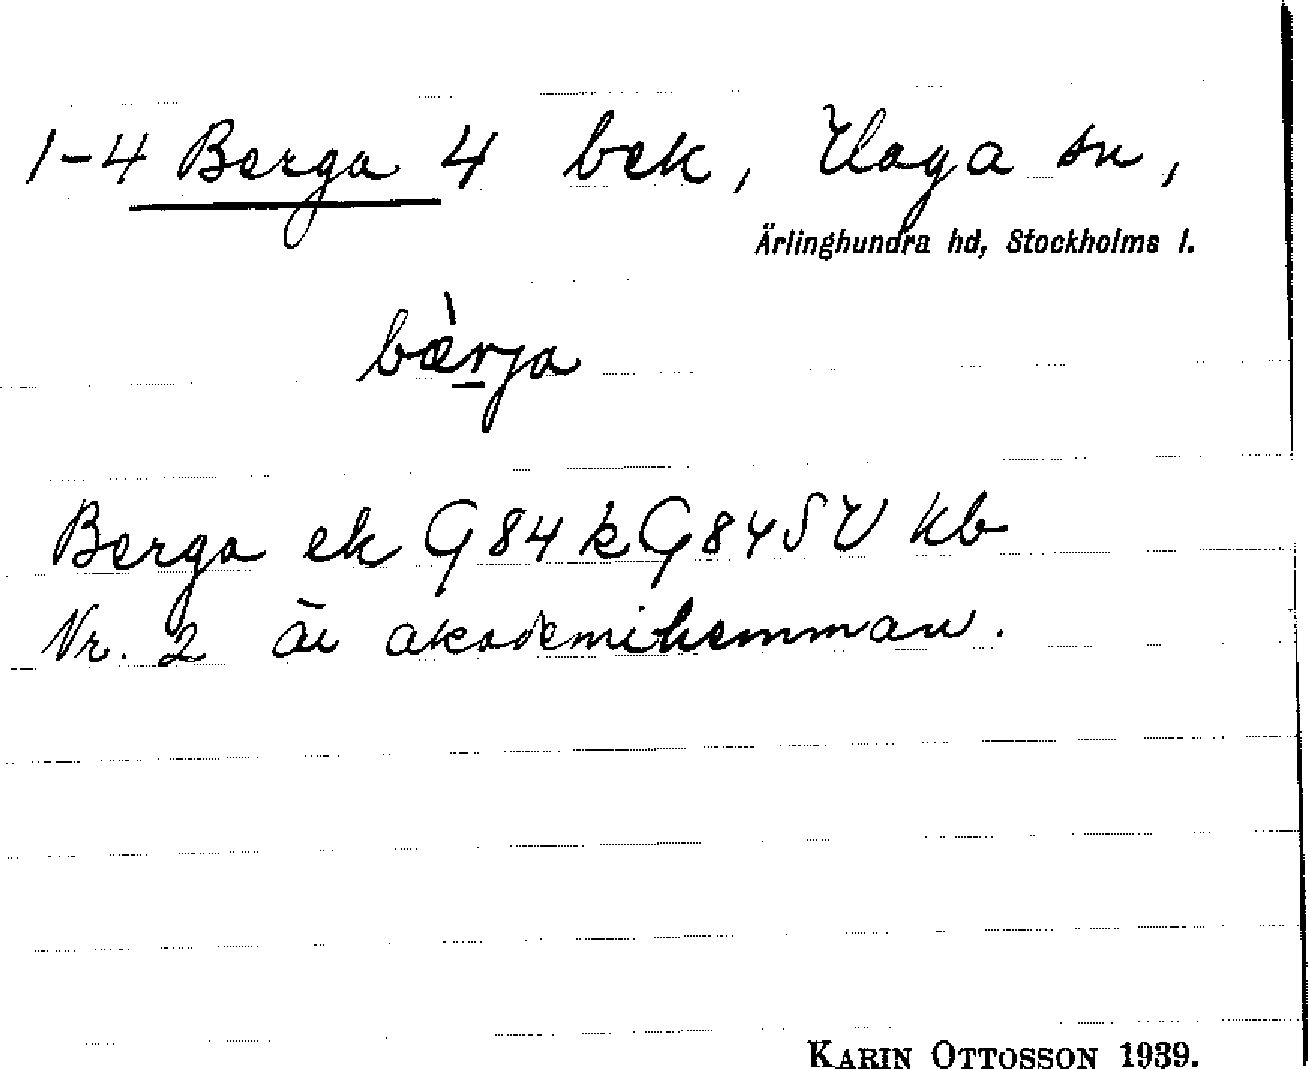 1-4 Berga 4 bek, Haga sn,
Ärlinghundra hd, Stockholms l.
bæ̀r̲ja
Berga ek G84 k G84 SV kb
Nr. 2 är akademihemman.
KARIN OTTOSSON 1939.